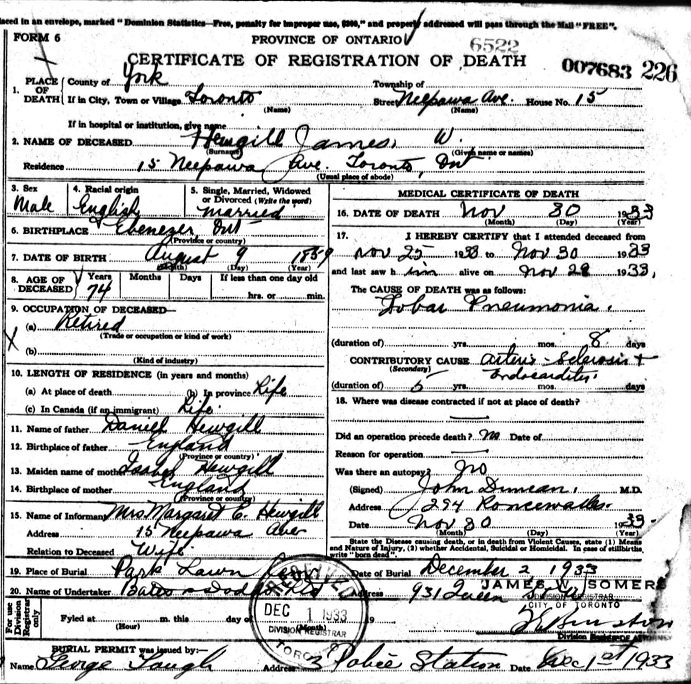 ased in an envelope, marked "Dominion Statistics—Free, penalty for improper use, $300," and properly addressed will pass through the Mail "FREE".
FORM 6
PROVINCE OF ONTARIO
6522
CERTIFICATE OF REGISTRATION OF DEATH
007683 226
1. PLACE OF DEATH County of York Township of
If in City, Town or Village Toronto (Name) Street Neepawa Ave. (Name) House No. 15
If in hospital or institution, give name
2. NAME OF DECEASED Hewgill (Surname) James W. (Given name or names)
Residence 15 Neepawa Ave. Toronto, Ont (Usual place of abode)
3. Sex Male
4. Racial origin English
5. Single, Married, Widowed or Divorced (Write the word) married
6. BIRTHPLACE Ebenezer, Ont (Province or country)
7. DATE OF BIRTH August (Month) 9 (Day) 1859 (Year)
8. AGE OF DECEASED Years 74 Months Days If less than one day old hrs. or min.
9. OCCUPATION OF DECEASED—
(a) Retired (Trade or occupation or kind of work)
(b) (Kind of industry)
10. LENGTH OF RESIDENCE (in years and months)
(a) At place of death (b) In province Life
(c) In Canada (if an immigrant) Life
11. Name of father Daniel Hewgill
12. Birthplace of father England (Province or country)
13. Maiden name of mother Isabel Hewgill
14. Birthplace of mother England (Province or country)
15. Name of Informant Mrs Margaret E. Hewgill
Address 15 Neepawa Ave
Relation to Deceased Wife
MEDICAL CERTIFICATE OF DEATH
16. DATE OF DEATH Nov (Month) 30 (Day) 1933 (Year)
17. I HEREBY CERTIFY that I attended deceased from
Nov 25 1933 to Nov 30 1933
and last saw him alive on Nov 29 1933,
The CAUSE OF DEATH was as follows:
Lobar Pneumonia.
(duration of) yrs. mos. 8 days
CONTRIBUTORY CAUSE (Secondary) Arterio-Sclerosis +
Endocarditis
(duration of) 5 yrs. mos. days
18. Where was disease contracted if not at place of death?
Did an operation precede death? No Date of
Reason for operation
Was there an autopsy? No
(Signed) John Duncan, M.D.
Address 294 Roncevalles
Date Nov 30 1933.
(Month) (Day) (Year)
State the Disease causing death, or in death from Violent Causes, state (1) Means and Nature of Injury, (2) whether Accidental, Suicidal or Homicidal. In case of stillbirths, write "born dead".
19. Place of Burial Park Lawn Date of Burial December 2 1933
20. Name of Undertaker Bates Dodds Address 931 Queen
JAMES W. SOMERS
DIVISION REGISTRAR
CITY OF TORONTO
For use Division Registrar only
Fyled at (Hour) m. this day of (Month) 19
Division Registrar
RECEIVED
DEC 1 1933
DIVISION REGISTRAR
TORONTO
BURIAL PERMIT was issued by:—
Name George Address 3 Police Station Date Dec 1st 1933